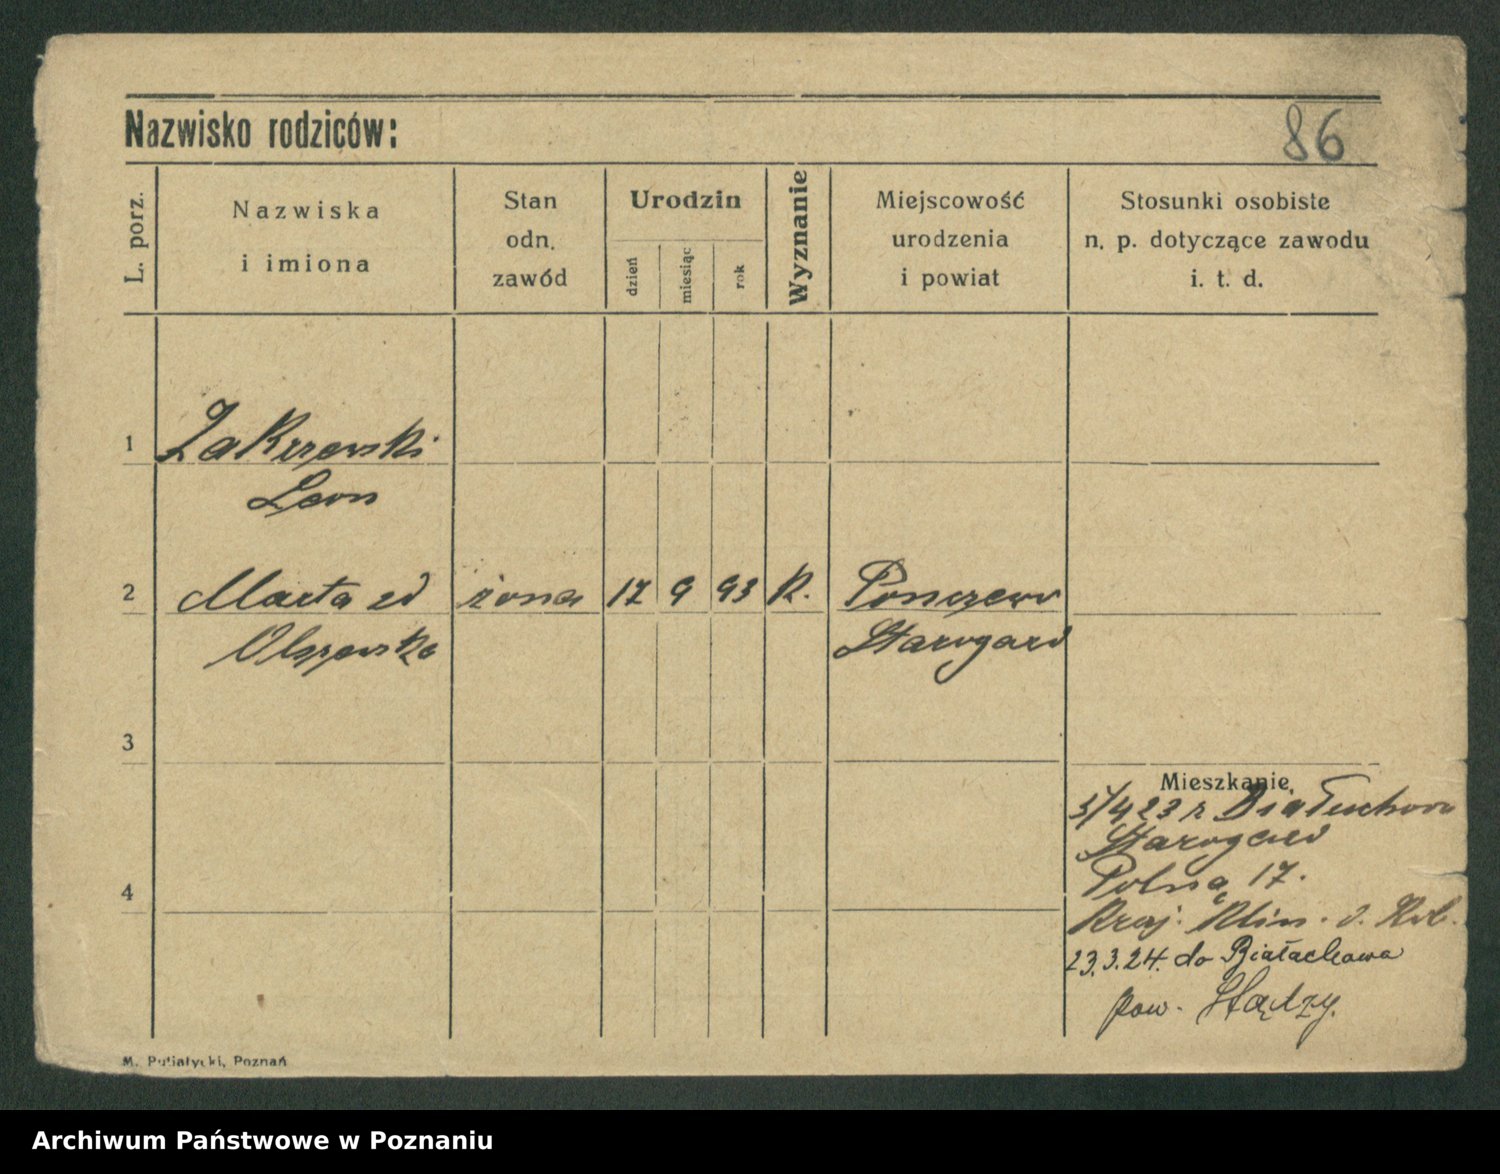 86
Nazwisko rodziców:
L. porz.
Nazwiska
i imiona
Stan
odn.
zawód
Urodzin
dzień
miesiąc
rok
Wyznanie
Miejscowość
urodzenia
i powiat
Stosunki osobiste
n. p. dotyczące zawodu
i. t. d.
1 Zakrzewski
Leon
2 Marta żona 17 9 93 K.
Olszewska Starogard
3
Mieszkanie,
5/4 23 z
Starogard
Polna 17.
4
23.3.24. do Białachowa
pow.
M. Putiatycki, Poznań
Archiwum Państwowe w Poznaniu